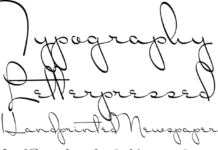 Typography
Letterpressed
Handprinted Newspaper